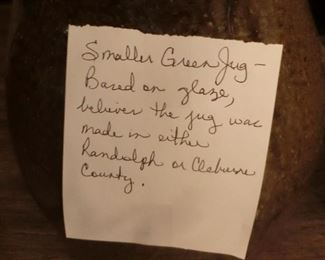 Smaller Green Jug -
Based on glaze,
believes the jug was
made in either
Randolph or Cleburne
County.